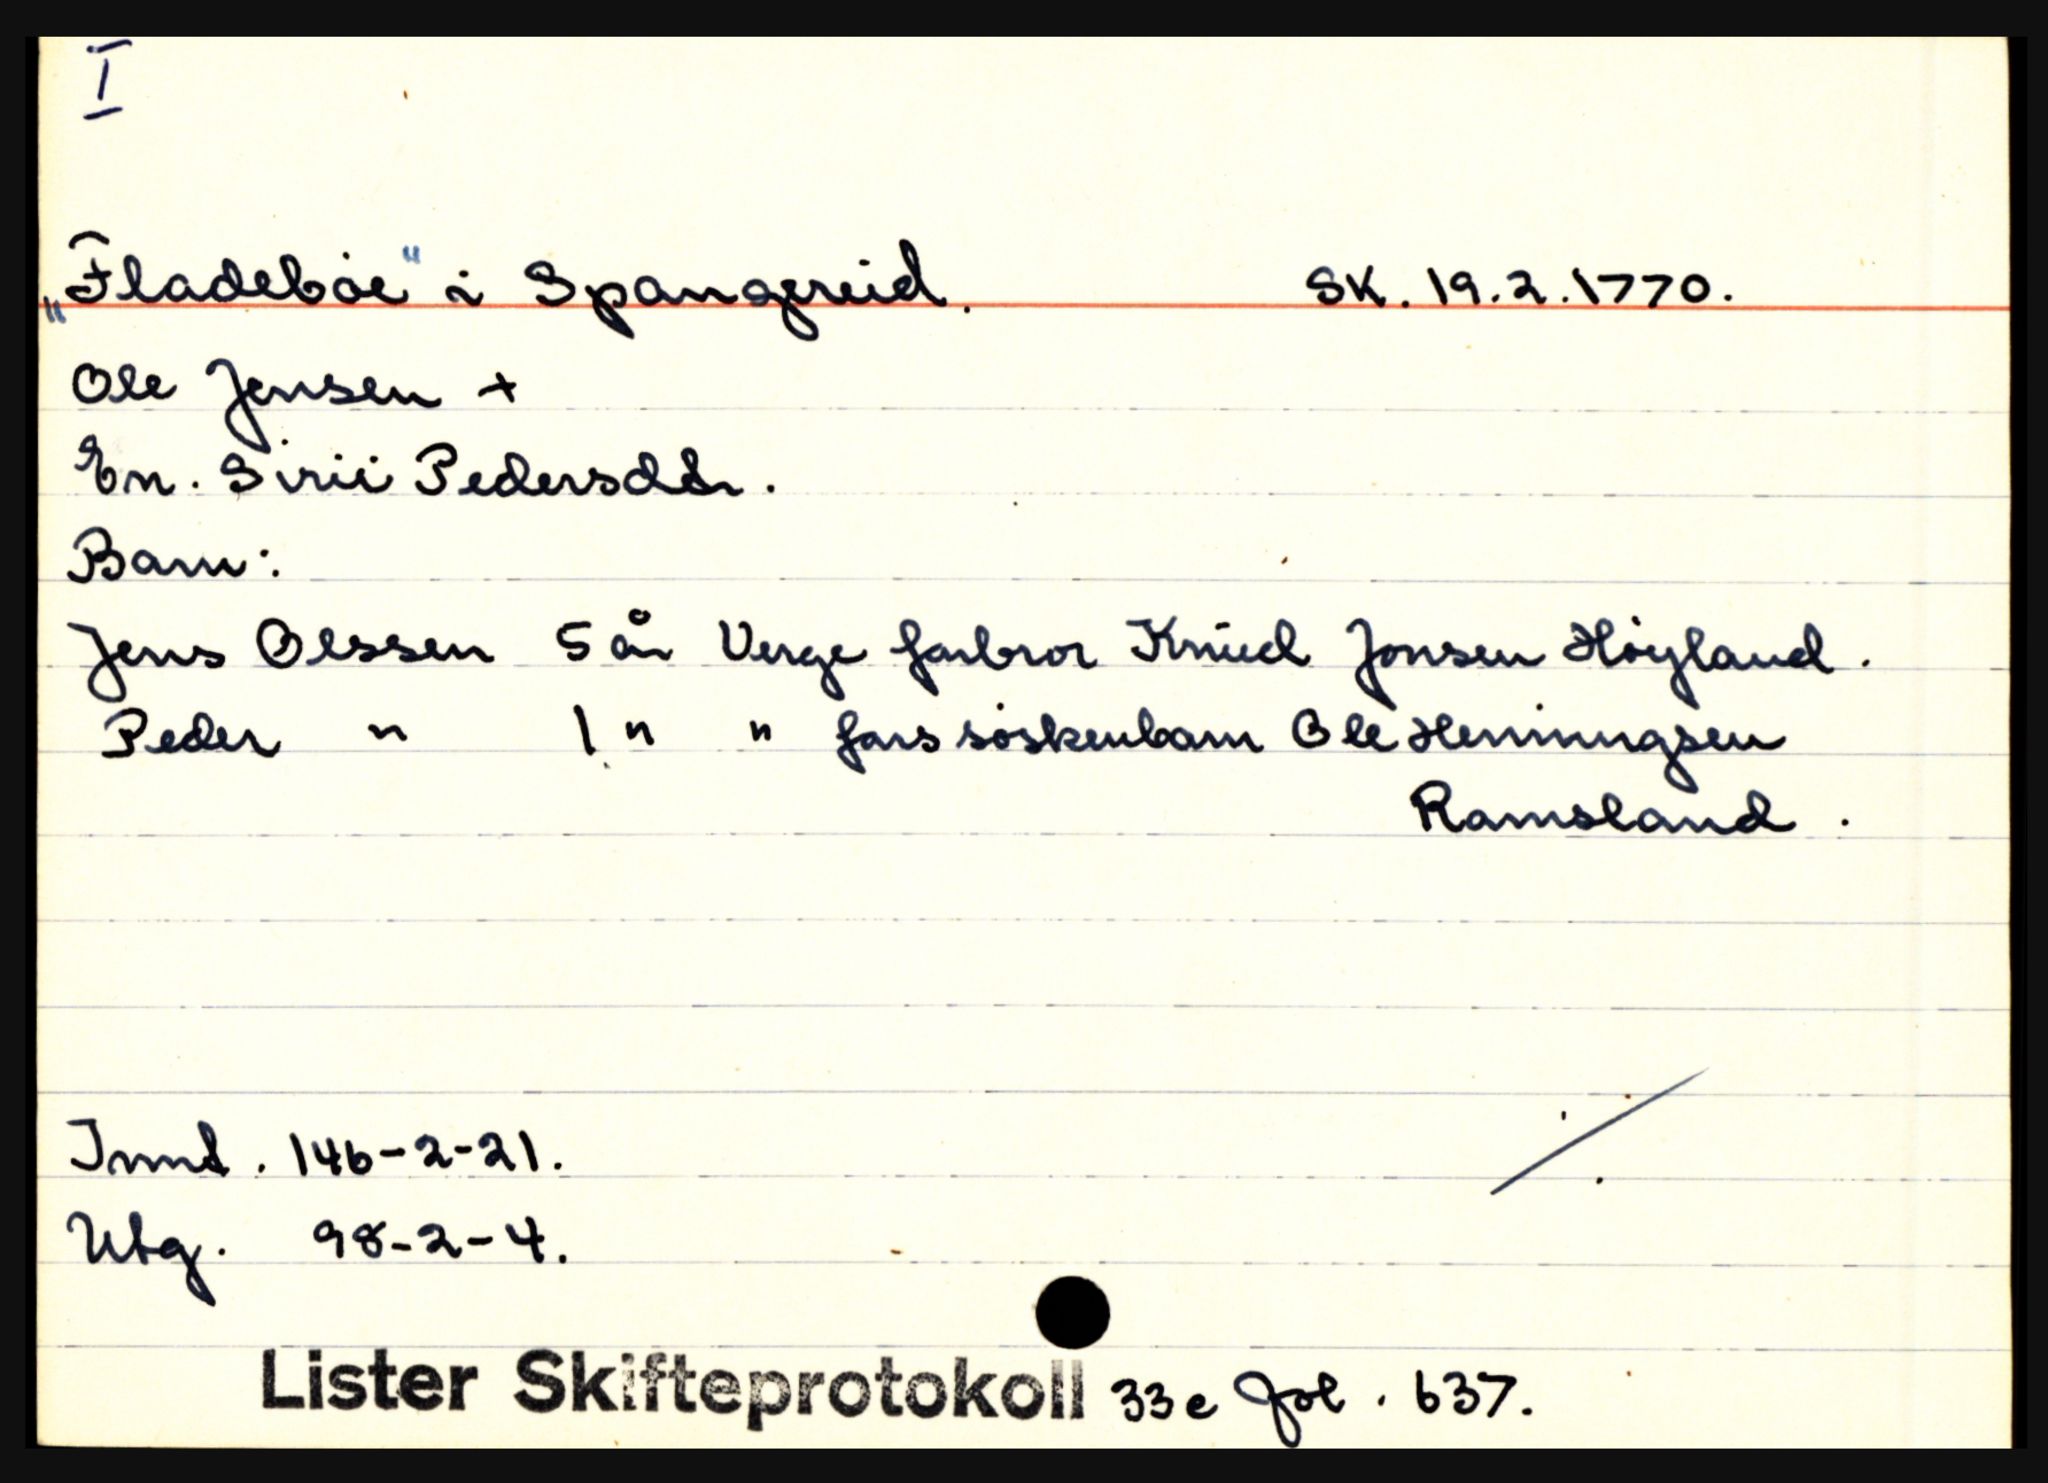 I
„Fladebøe" i Spangereid. SK. 19.2.1770.
Ole Jensen +
En. Sirii Pedersdtr.
Barn:
Jens Olssen 5 år Verge farbror Knud Jonsen Høyland.
Peder " 1 " " fars søskenbarn Ole Henningsen
Ramsland.
Innt. 146-2-21.
Utg. 98-2-4.
Lister Skifteprotokoll 33c fol. 637.